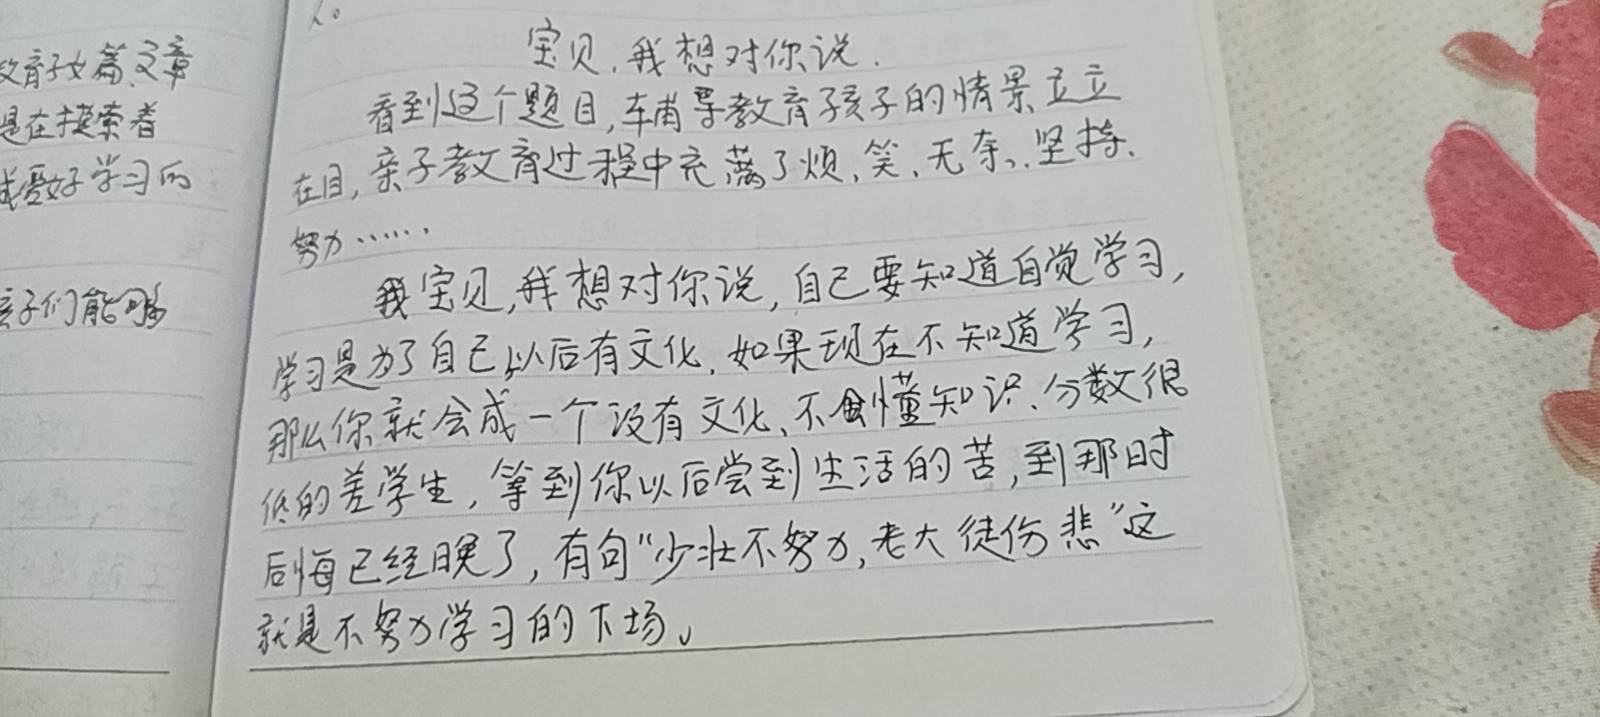 人。
教育子女篇文章
是在摸索着
学习的
孩子们能够
宝贝,我想对你说.
看到这个题目,辅导教育孩子的情景立立
在目,亲子教育过程中充满了烦、笑、无奈、坚持、
努力······
我宝贝,我想对你说,自己要知道自觉学习,
学习是为了自己,以后有文化,如果现在不知道学习,
那么你就会成一个没有文化、不懂知识、分数很
低的差学生,等到你以后尝到生活的苦,到那时
后悔已经晚了,有句“少壮不努力,老大徒伤悲”这
就是不努力学习的下场。